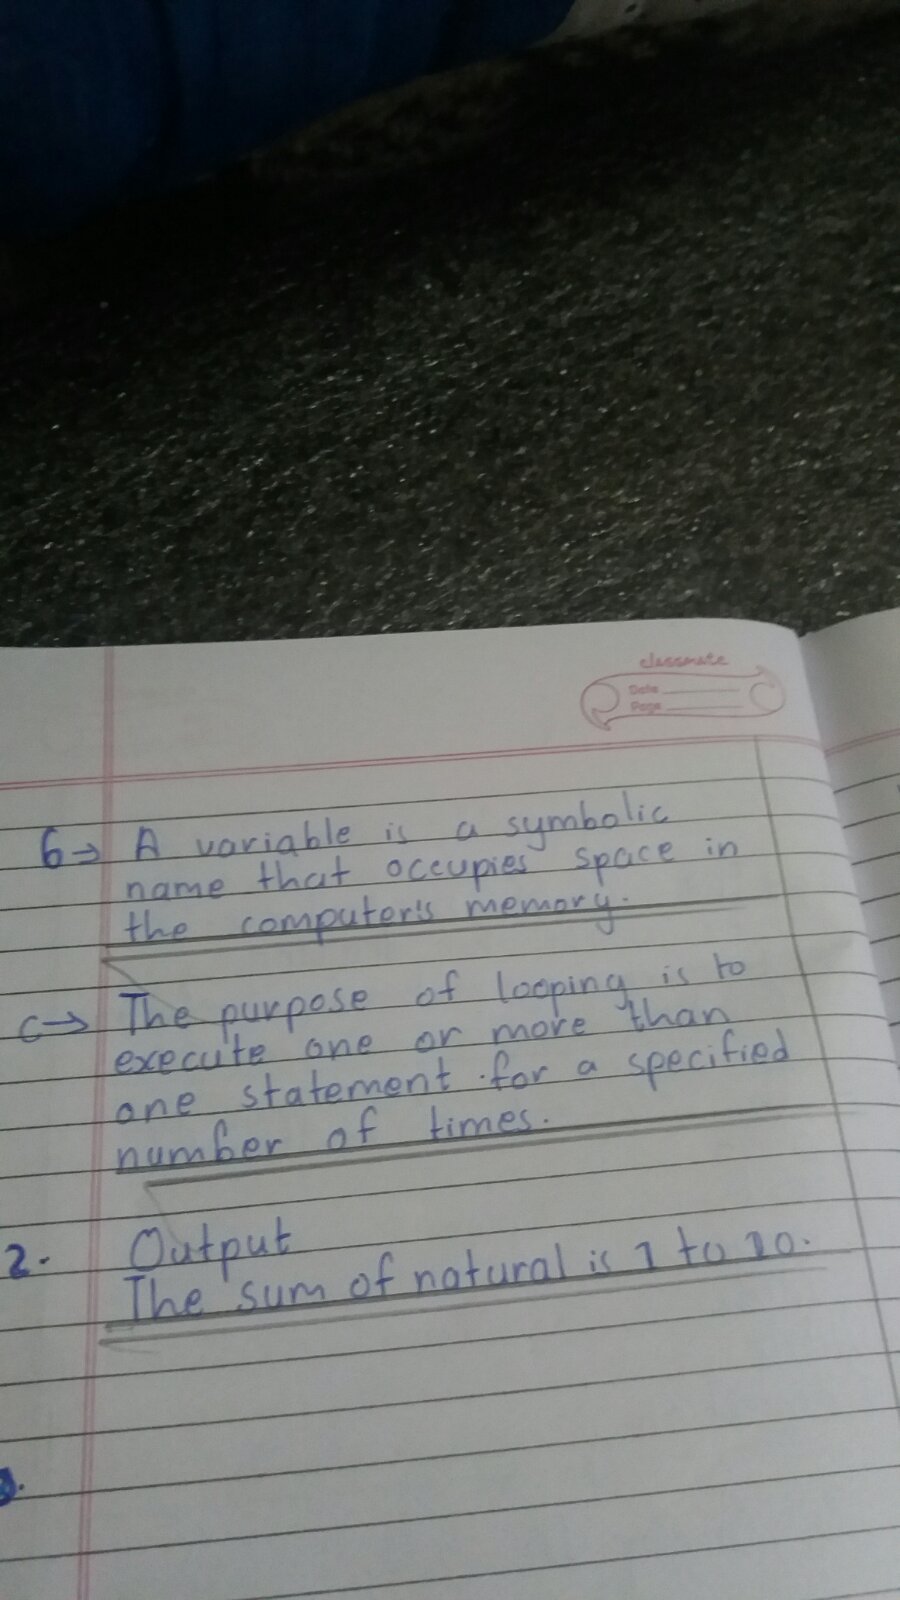 classmate
Date
Page
6→ A variable is a symbolic
name that occupies space in
the computer's memory.
C→ The purpose of looping is to
execute one or more than
one statement for a specified
number of times.
2. Output
The sum of natural is 1 to 10.